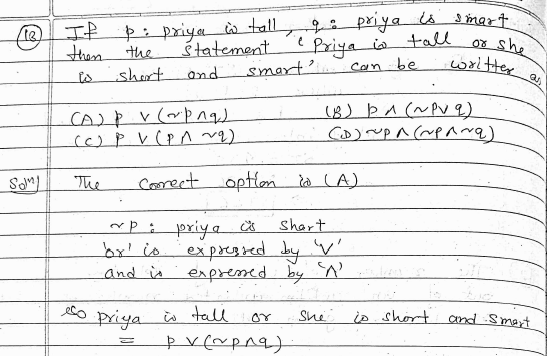 (18) If p : priya is tall, q : priya is smart
then the statement 'Priya is tall or she
is short and smart' can be written as
(A) p ∨ (~p∧q) (B) p ∧ (~p∨q)
(C) p ∨ (p ∧ ~q) (D) ~p ∧ (~p∧~q)
Soln) The Correct option is (A)
~p : priya is short
'or' is expressed by '∨'
and is expressed by '∧'
so priya is tall or she is short and smart
= p ∨ (~p∧q)